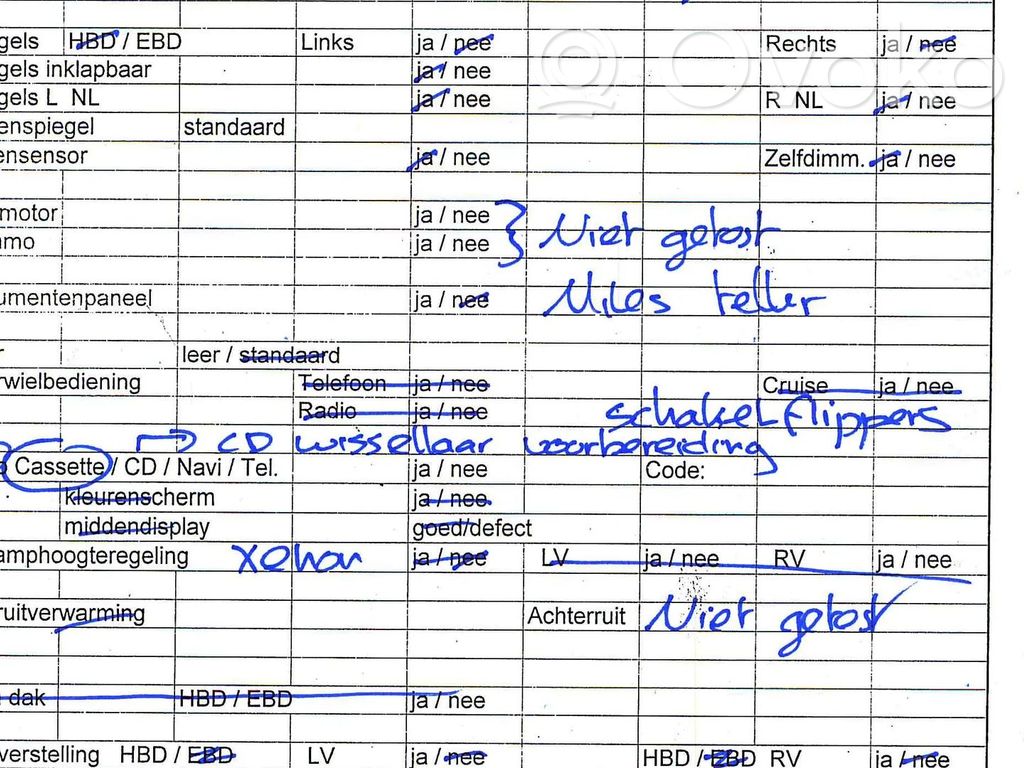 gels HBD / EBD Links ja / nee Rechts ja / nee
gels inklapbaar ja / nee
gels L NL ja / nee R NL ja / nee
enspiegel standaard
ensensor ja / nee Zelfdimm. ja / nee
motor ja / nee
mo ja / nee
} Niet getest
umentenpaneel ja / nee Miles teller
r leer / standaard
rwielbediening Telefoon ja / nee Cruise ja / nee
Radio ja / nee schakel flippers
→ CD wissellaar voorbereiding
Cassette / CD / Navi / Tel. ja / nee Code:
kleurenscherm ja / nee
middendisplay goed/defect
amphoogteregeling Xenon ja / nee LV ja / nee RV ja / nee
ruitverwarming Achterruit Niet getest
dak HBD / EBD ja / nee
verstelling HBD / EBD LV ja / nee HBD / EBD RV ja / nee
Ovoko